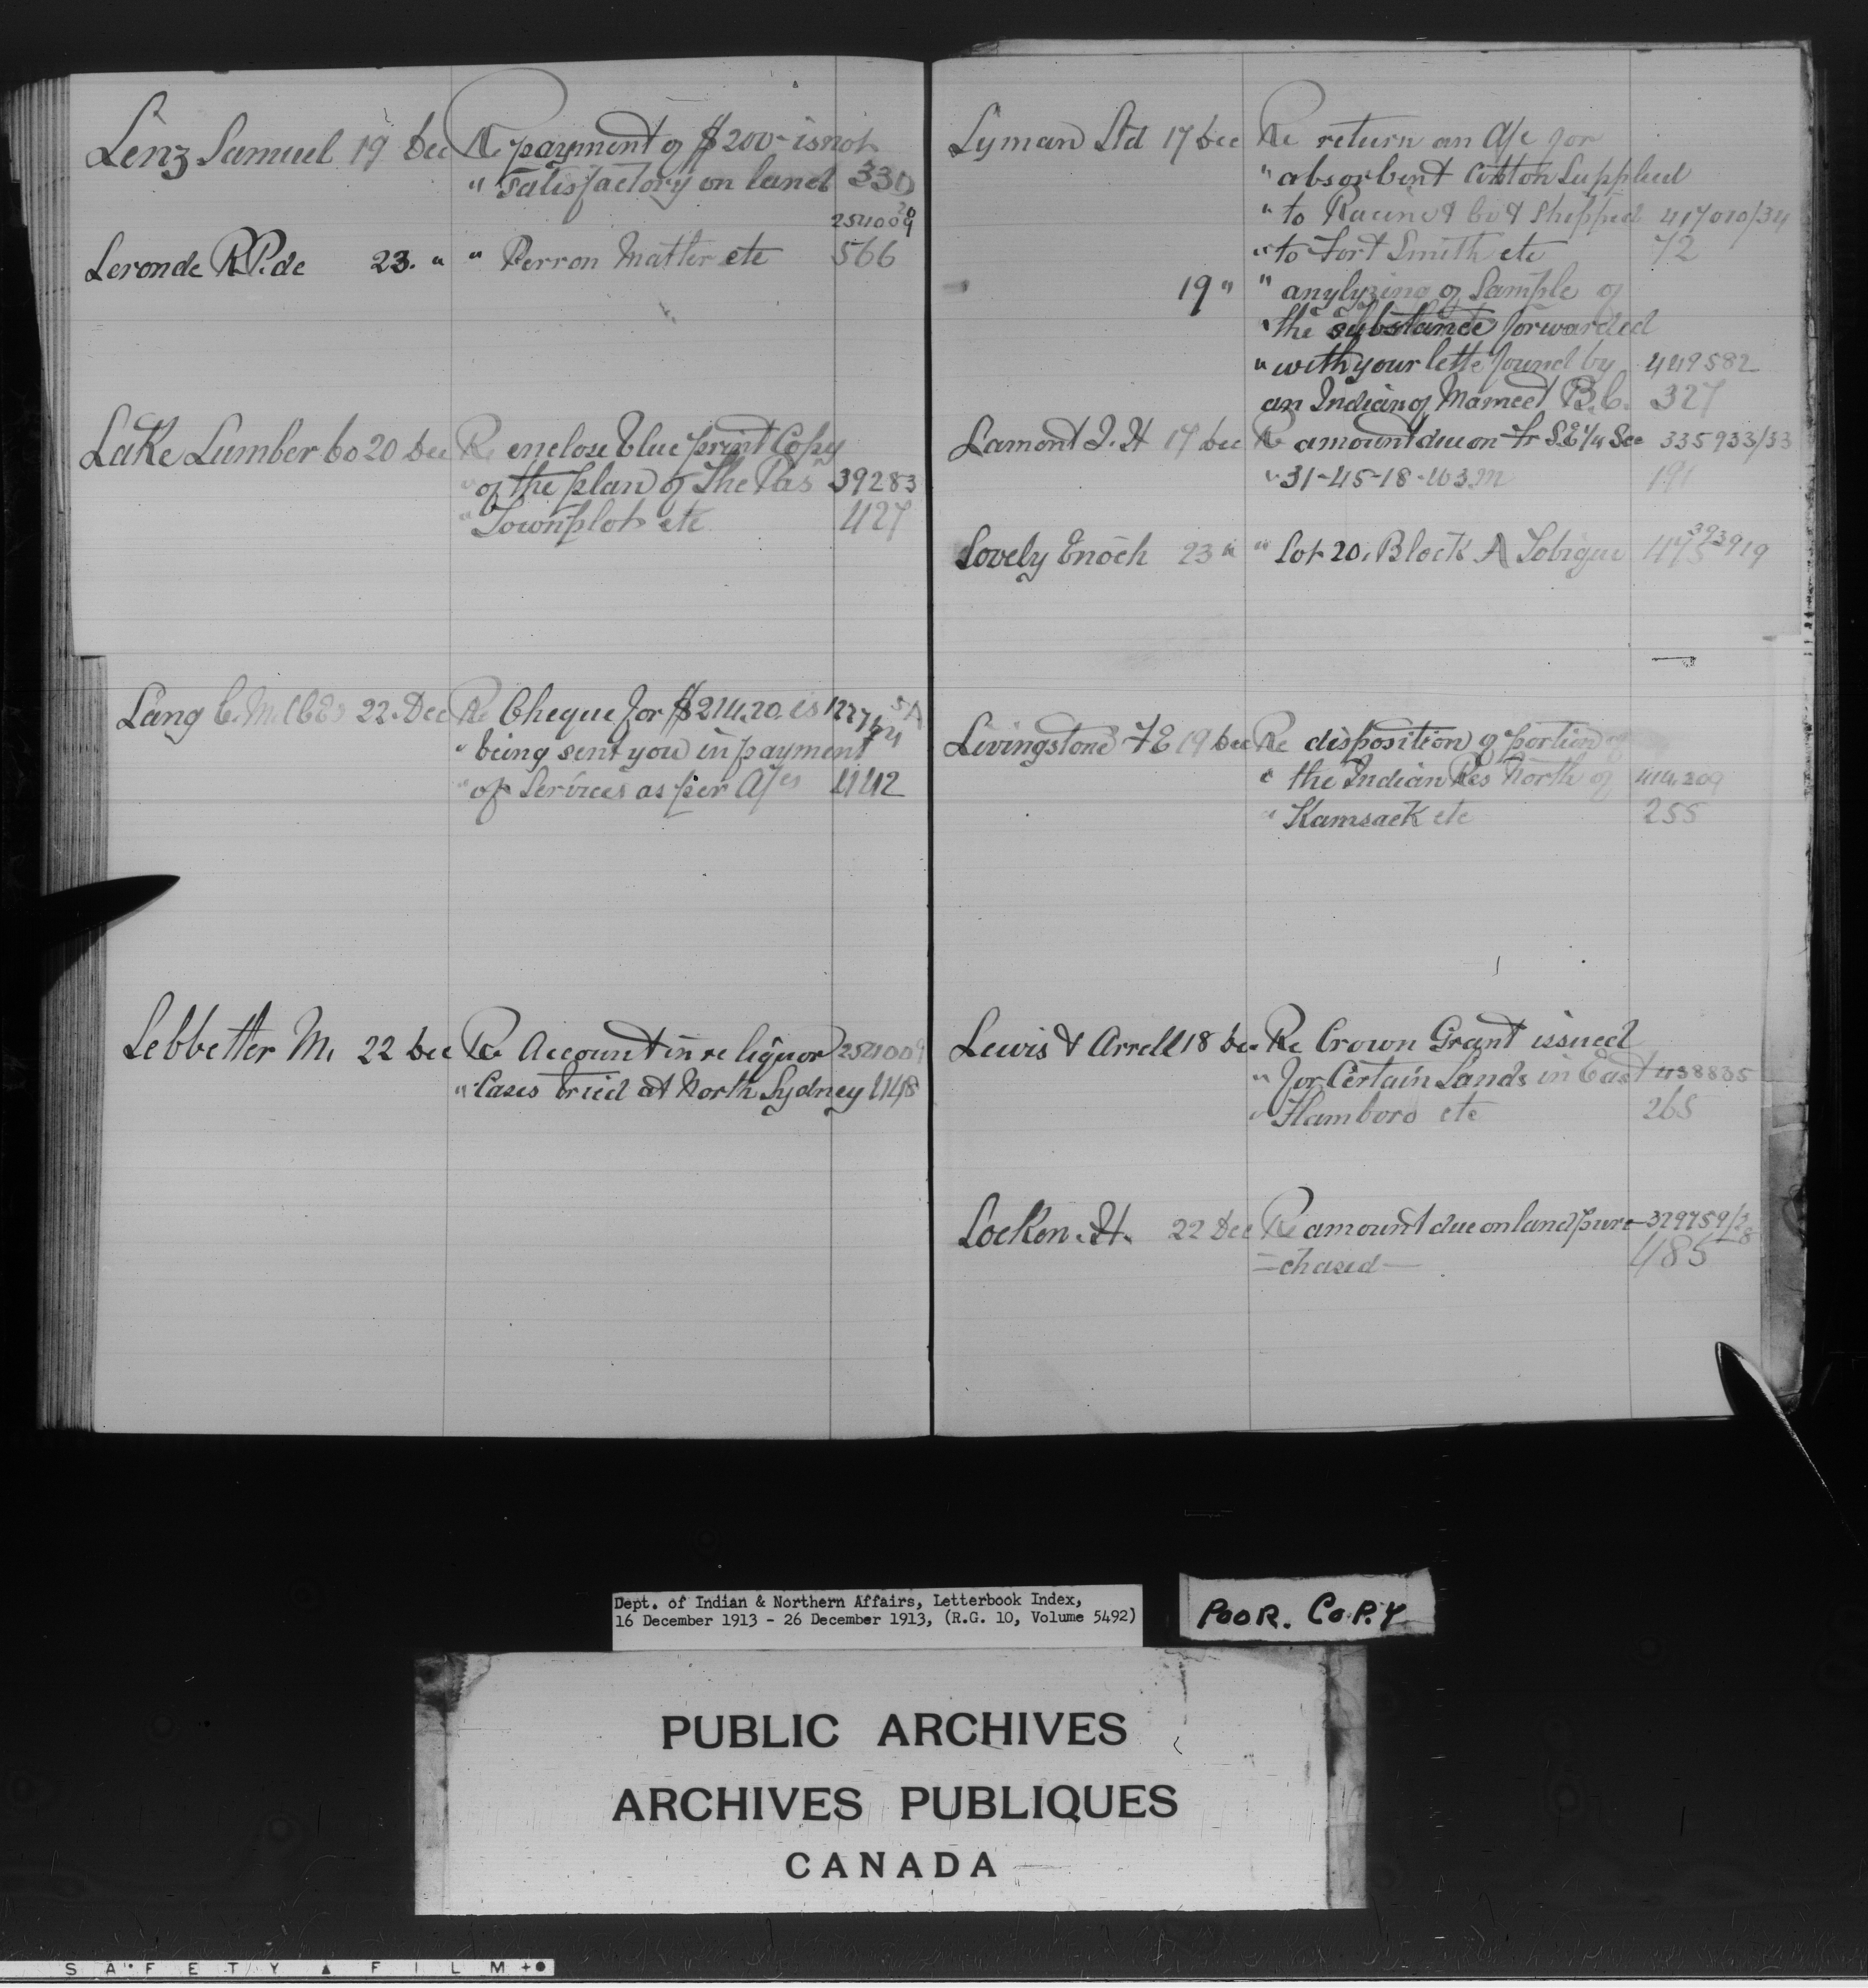 Lenz Samuel 19 Dec Re payment of $200- is not
" Satisfactory on land 330
254009 20
Leronde R.P. de 23. " " Perron Matter etc 566
Lake Lumber Co 20 Dec Re enclose blue print Copy
" of the plan of The Pas 39283
" Townplot etc 427
Lang C. M. 22. Dec Re Cheque for $214.20. is
" being sent you in payment
" of Services as per A/cs 442
Lebbetter M. 22 Dec Re Account in re liquor 254009
" Cases tried at North Sydney 448
Lyman Ltd 17 Dec Re return an A/c for
" absorbent Cotton Supplied
" to Racine & Co & Shipped 417010/34
" to Fort Smith etc 72
19 " " anylyzing of Sample of
" the substance forwarded
" with your lette found by 449582
an Indian of Mameet B.C. 327
Lamont J. H 17 Dec Re amount due on Fr S.E 1/4 Sec 335933/33
" 31-45-18-W3.M 191
Lovely Enoch 23 " " Lot 20. Block A Tobique 475 393919
Livingstone F E 19 Dec Re disposition of portion of
" the Indian Res North of 414209
" Kamsack etc 255
Lewis & Arrell 18 Dec Re Crown Grant issued
" for Certain Lands in East 438835
" Flamboro etc 265
Locken. H. 22 Dec Re amount due on land pur- 329759/28
=chased- 485
Dept. of Indian & Northern Affairs, Letterbook Index,
16 December 1913 - 26 December 1913, (R.G. 10, Volume 5492)
POOR. COPY
PUBLIC ARCHIVES
ARCHIVES PUBLIQUES
CANADA
SAFETY FILM